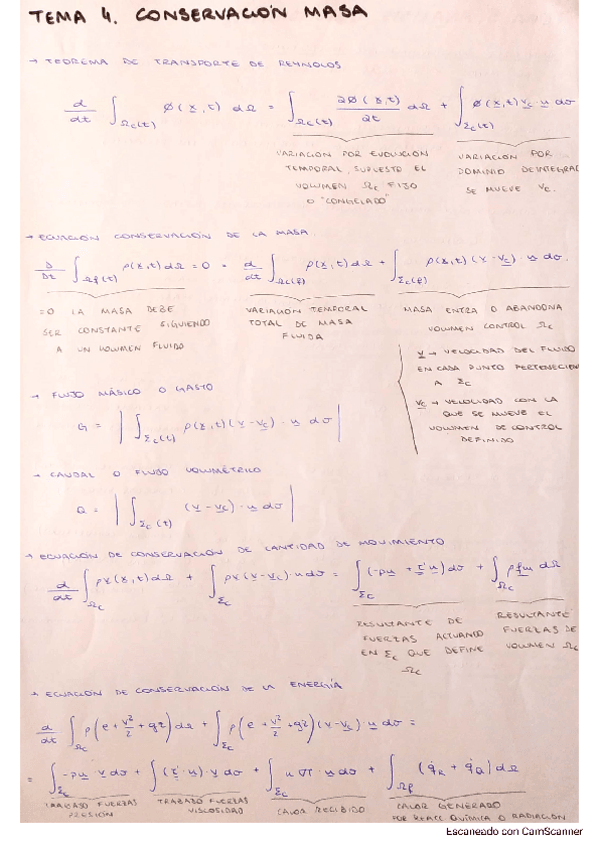 TEMA 4. CONSERVACIÓN MASA
→ TEOREMA DE TRANSPORTE DE REYNOLDS
d/dt ∫_Ωc(t) φ(x,t) dΩ = ∫_Ωc(t) ∂φ(x,t)/∂t dΩ + ∫_Σc(t) φ(x,t) vc · n dσ
VARIACIÓN POR EVOLUCIÓN TEMPORAL, SUPUESTO EL VOLUMEN Ωc FIJO O "CONGELADO"
VARIACIÓN POR DOMINIO DE INTEGRAC SE MUEVE vc.
→ ECUACIÓN CONSERVACIÓN DE LA MASA.
D/Dt ∫_Ωf(t) ρ(x,t) dΩ = 0 = d/dt ∫_Ωc(t) ρ(x,t) dΩ + ∫_Σc(t) ρ(x,t) (v - vc) · n dσ.
=0 LA MASA DEBE SER CONSTANTE SIGUIENDO A UN VOLUMEN FLUIDO
VARIACIÓN TEMPORAL TOTAL DE MASA FLUIDA
MASA ENTRA O ABANDONA VOLUMEN CONTROL Ωc
v → VELOCIDAD DEL FLUIDO EN CADA PUNTO PERTENECIEN A Σc
vc → VELOCIDAD CON LA QUE SE MUEVE EL VOLUMEN DE CONTROL DEFINIDO
→ FLUJO MÁSICO O GASTO
G = | ∫_Σc(t) ρ(x,t) (v - vc) · n dσ |
→ CAUDAL O FLUJO VOLUMÉTRICO
Q = | ∫_Σc(t) (v - vc) · n dσ |
→ ECUACIÓN DE CONSERVACIÓN DE CANTIDAD DE MOVIMIENTO
d/dt ∫_Ωc ρv(x,t) dΩ + ∫_Σc ρv (v - vc) · n dσ = ∫_Σc (-pn + τ' n) dσ + ∫_Ωc ρ fm dΩ
RESULTANTE DE FUERZAS ACTUANDO EN Σc QUE DEFINE Ωc
RESULTANTE FUERZAS DE VOLUMEN Ωc
→ ECUACIÓN DE CONSERVACIÓN DE LA ENERGÍA
d/dt ∫_Ωc ρ(e + v²/2 + gz) dΩ + ∫_Σc ρ(e + v²/2 + gz)(v - vc) n dσ =
= ∫_Σc -pn · v dσ + ∫_Σc (τ' · n) · v dσ + ∫_Σc κ∇T · n dσ + ∫_Ωc (q̇R + q̇Q) dΩ
TRABAJO FUERZAS PRESIÓN
TRABAJO FUERZAS VISCOSIDAD
CALOR RECIBIDO
CALOR GENERADO POR REACC QUÍMICA O RADIACIÓN
Escaneado con CamScanner